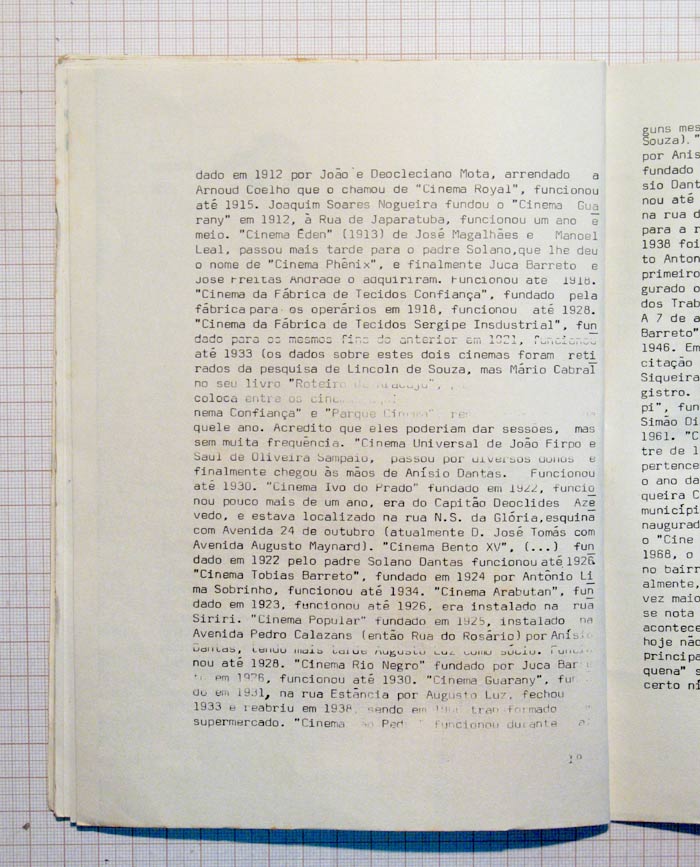 dado em 1912 por João e Deocleciano Mota, arrendado a
Arnoud Coelho que o chamou de "Cinema Royal", funcionou
até 1915. Joaquim Soares Nogueira fundou o "Cinema Gua
rany" em 1912, à Rua de Japaratuba, funcionou um ano e
meio. "Cinema Éden" (1913) de José Magalhães e Manoel
Leal, passou mais tarde para o padre Solano,que lhe deu
o nome de "Cinema Phênix", e finalmente Juca Barreto e
José Freitas Andrade o adquiriram. Funcionou até 1918.
"Cinema da Fábrica de Tecidos Confiança", fundado pela
fábrica para os operários em 1918, funcionou até 1928.
"Cinema da Fábrica de Tecidos Sergipe Insdustrial", fun
dado para os mesmos fins do anterior em 1921, funcionou
até 1933 (os dados sobre estes dois cinemas foram reti
rados da pesquisa de Lincoln de Souza, mas Mário Cabral
no seu livro "Roteiro de Aracaju",
coloca entre os
nema Confiança" e "Parque Cinema"
quele ano. Acredito que eles poderiam dar sessões, mas
sem muita frequência. "Cinema Universal de João Firpo e
Saul de Oliveira Sampaio, passou por diversos donos e
finalmente chegou às mãos de Anísio Dantas. Funcionou
até 1930. "Cinema Ivo do Prado" fundado em 1922, funcio
nou pouco mais de um ano, era do Capitão Deoclides Aze
vedo, e estava localizado na rua N.S. da Glória,esquina
com Avenida 24 de outubro (atualmente D. José Tomás com
Avenida Augusto Maynard). "Cinema Bento XV", (...) fun
dado em 1922 pelo padre Solano Dantas funcionou até 1926.
"Cinema Tobias Barreto", fundado em 1924 por Antônio Li
ma Sobrinho, funcionou até 1934. "Cinema Arabutan", fun
dado em 1923, funcionou até 1926, era instalado na rua
Siriri. "Cinema Popular" fundado em 1925, instalado na
Avenida Pedro Calazans (então Rua do Rosário) por Anísio
Dantas, tendo mais tarde Augusto Luz como sócio. Funcio
nou até 1928. "Cinema Rio Negro" fundado por Juca Bar
em 1926, funcionou até 1930. "Cinema Guarany", fun
do em 1931, na rua Estância por Augusto Luz, fechou
1933 e reabriu em 1938, sendo em transformado
supermercado. "Cinema funcionou durante
19
guns mes
Souza). "
por Anis
fundado
sio Dant
nou até
na rua d
para a r
1938 foi
to Anton
primeiro
gurado o
dos Trab
A 7 de a
Barreto"
1946. Em
citação
Siqueira
gistro.
pi", fun
Simão Di
1961. "C
tre de 1
pertences
o ano da
queira C
municípi
naugurad
o "Cine
1968, o
no bairr
almente,
vez maio
se nota
acontece
hoje não
principa
quena" s
certo ní